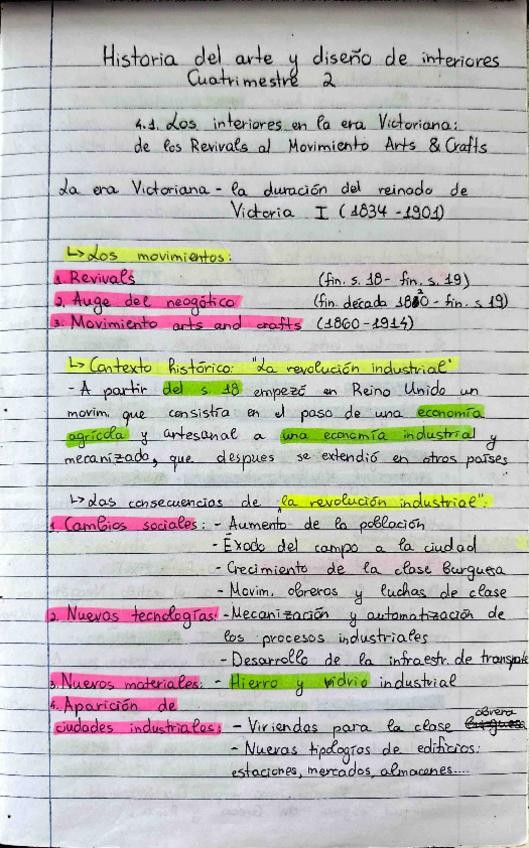 Historia del arte y diseño de interiores
Cuatrimestre 2
4.1. Los interiores en la era Victoriana:
de los Revivals al Movimiento Arts & Crafts
La era Victoriana - la duración del reinado de
Victoria I (1834 - 1901)
↳ Los movimientos:
1. Revivals (fin. s. 18 - fin. s. 19)
2. Auge del neogótico (fin. década 1820 - fin. s 19)
3. Movimiento arts and crafts (1860-1914)
↳ Contexto histórico: "La revolución industrial"
- A partir del s. 18 empezó en Reino Unido un
movim. que consistía en el paso de una economía
agrícola y artesanal a una economía industrial y
mecanizado, que despues se extendió en otros países
↳ Las consecuencias de "la revolución industrial":
1. Cambios sociales: - Aumento de la población
- Éxodo del campo a la ciudad
- Crecimiento de la clase burguesa
- Movim. obreros y luchas de clase
2. Nuevos tecnologías: - Mecanización y automatización de
los procesos industriales
- Desarrollo de la infraestr. de transporte
3. Nuevos materiales: - Hierro y vidrio industrial
4. Aparición de
ciudades industriales: - Viviendas para la clase obrera
- Nuevas tipologías de edificios:
estaciones, mercados, almacenes....